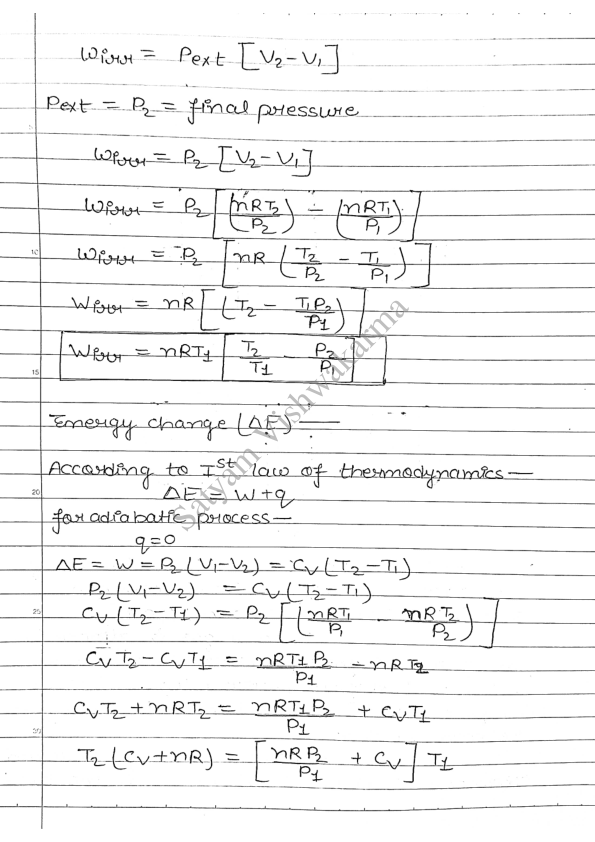 Wirr = Pext [V₂-V₁]
Pext = P₂ = final pressure
Wirr = P₂ [V₂-V₁]
Wirr = P₂ [(nRT₂/P₂) - (nRT₁/P₁)]
10
Wirr = P₂ [nR (T₂/P₂ - T₁/P₁)]
Wirr = nR[(T₂ - T₁P₂/P1)]
Wirr = nRT1 [T₂/T1 - P₂/P₁]
15
Energy change (ΔE) —
According to Ist law of thermodynamics—
20
ΔE = W+q
for adiabatic process—
q=0
ΔE = W = P₂(V₁-V₂) = Cv(T₂-T₁)
P₂(V₁-V₂) = Cv(T₂-T₁)
25
Cv(T₂-T1) = P₂[(nRT₁/P₁ - nRT₂/P₂)]
CvT₂-CvT1 = nRT1P₂/P1 - nRT2
CvT₂+nRT₂ = nRT1P₂/P1 + CvT1
30
T₂(Cv+nR) = [nRP₂/P1 + Cv] T1
Satyam Vishwakarma